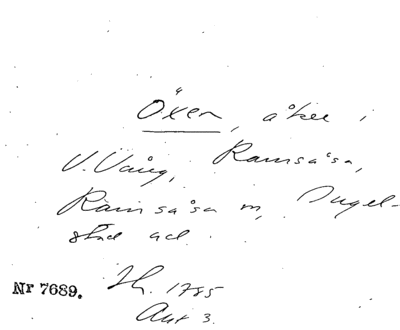 Öxen, åker i
V. Vång, Ramsåsa,
Ramsåsa sn, Ingel-
stad hd.
Nr 7689. Sk. 1785
Akt 3.